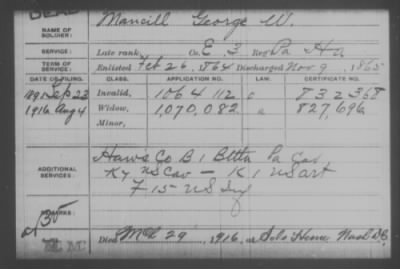 NAME OF SOLDIER: Mancill George W.
SERVICE: Late rank, Co. E. 3. Reg't Pa H a
TERM OF SERVICE: Enlisted Feb 26, 1864 Discharged Nov 9, 1865
DATE OF FILING. CLASS. APPLICATION NO. LAW. CERTIFICATE NO.
1891 Sep 23 Invalid, 1064 112 832368
1916 Aug 4 Widow, 1,070,082 827,696
Minor,
ADDITIONAL SERVICES: Co B 1 Pa Cav
Ky US Cav - K 1 US art
F 15 US Inf
REMARKS:
Died Mch 29, 1916, at Home